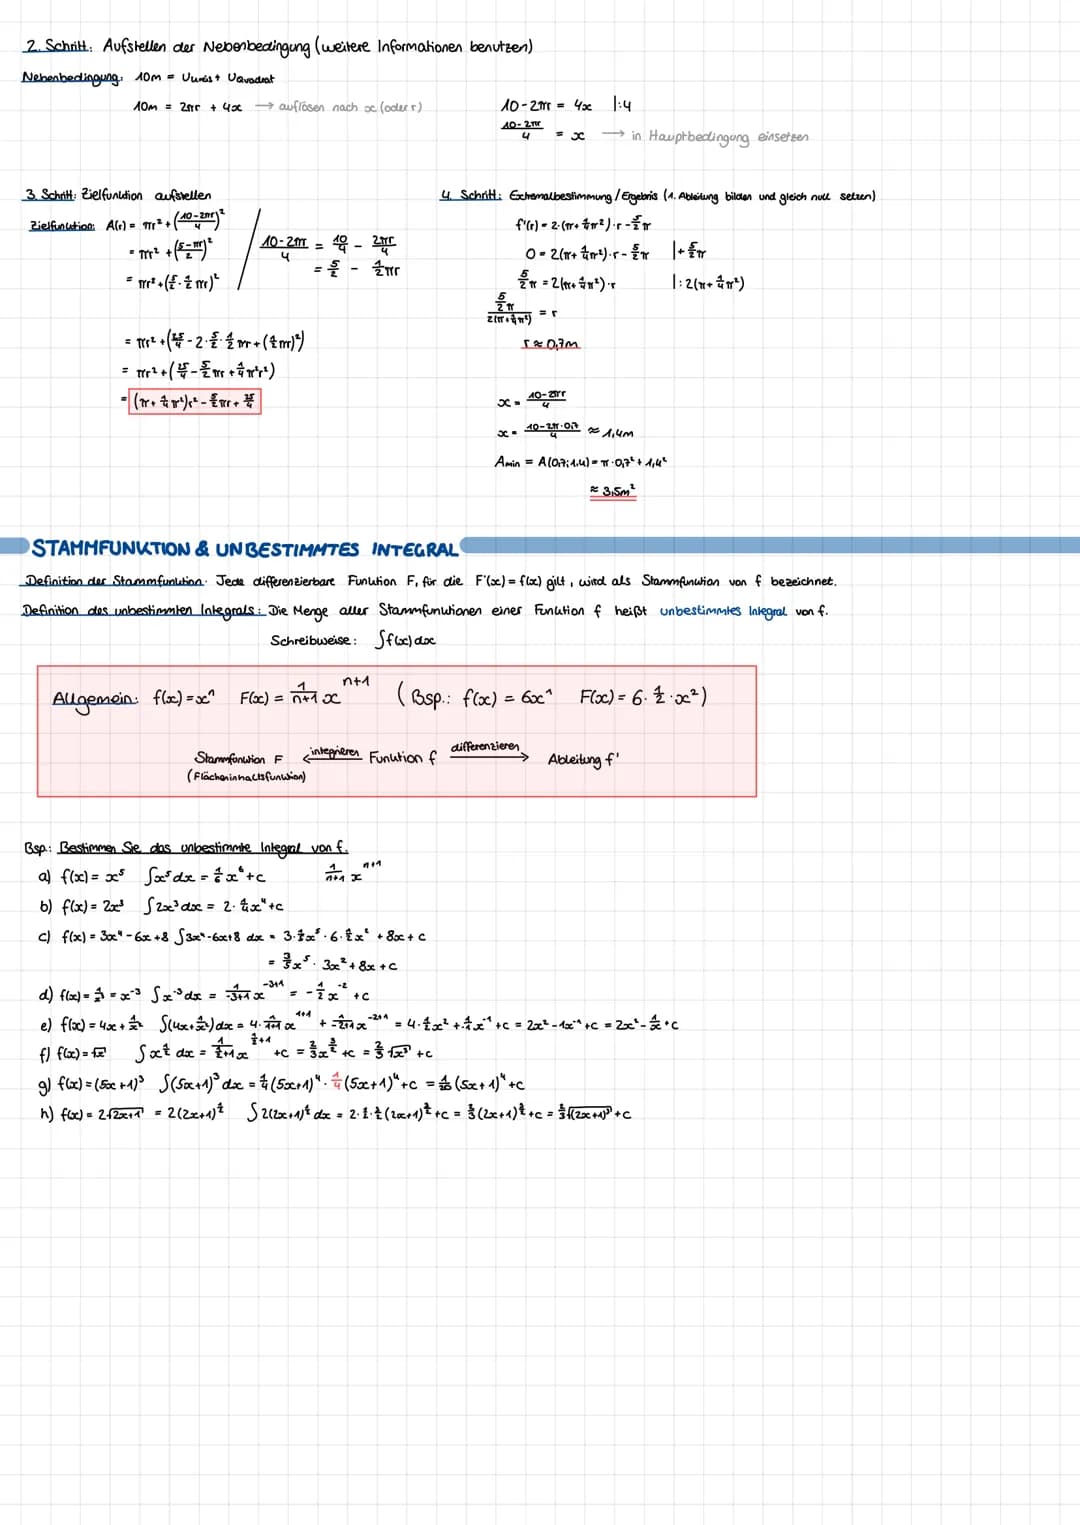 2. Schritt: Aufstellen der Nebenbedingung (weitere Informationen benutzen)
Nebenbedingung: 10m = Ukreis + UQuadrat
10m = 2πr + 4x → auflösen nach x (oder r)
10-2πr = 4x |:4
(10-2πr)/4 = x → in Hauptbedingung einsetzen
3. Schritt: Zielfunktion aufstellen
Zielfunktion: A(r) = πr² + ((10-2πr)/4)²
= πr² + ((5-πr)/2)²
= πr² + (5/2 - 1/2 πr)²
(10-2πr)/4 = 10/4 - 2πr/4
= 5/2 - 1/2 πr
= πr² + (25/4 - 2·5/2·1/2 πr + (1/2 πr)²)
= πr² + (25/4 - 5/2 πr + 1/4 π²r²)
= (π + 1/4 π²)r² - 5/2 πr + 25/4
4. Schritt: Extremalbestimmung / Ergebnis (1. Ableitung bilden und gleich null setzen)
f'(r) = 2·(π + 1/4 π²)·r - 5/2 π
0 = 2(π + 1/4 π²)·r - 5/2 π |+ 5/2 π
5/2 π = 2(π + 1/4 π²)·r |: 2(π + 1/4 π²)
(5/2 π)/(2(π + 1/4 π²)) = r
r ≈ 0,7m
x = (10-2πr)/4
x = (10-2π·0,7)/4 ≈ 1,4m
Amin = A(0,7; 1,4) = π·0,7² + 1,4²
≈ 3,5m²
STAMMFUNKTION & UNBESTIMMTES INTEGRAL
Definition der Stammfunktion: Jede differenzierbare Funktion F, für die F'(x) = f(x) gilt, wird als Stammfunktion von f bezeichnet.
Definition des unbestimmten Integrals: Die Menge aller Stammfunktionen einer Funktion f heißt unbestimmtes Integral von f.
Schreibweise: ∫f(x)dx
Allgemein: f(x) = xⁿ F(x) = 1/(n+1) x^(n+1) (Bsp.: f(x) = 6x¹ F(x) = 6·1/2·x²)
Stammfunktion F ← integrieren Funktion f differenzieren → Ableitung f'
(Flächeninhaltsfunktion)
Bsp.: Bestimmen Sie das unbestimmte Integral von f.
a) f(x) = x⁵ ∫x⁵dx = 1/6 x⁶ + c 1/(n+1) x^(n+1)
b) f(x) = 2x³ ∫2x³dx = 2·1/4x⁴ + c
c) f(x) = 3x⁴ - 6x + 8 ∫3x⁴-6x+8 dx = 3·1/5x⁵ · 6·1/2x² + 8x + c
= 3/5x⁵ · 3x² + 8x + c
d) f(x) = 1/x³ = x⁻³ ∫x⁻³dx = 1/(-3+1) x^(-3+1) = -1/2 x⁻² + c
e) f(x) = 4x + 1/x² ∫(4x + 1/x²)dx = 4·1/(1+1) x^(1+1) + 1/(-2+1) x^(-2+1) = 4·1/2x² + 1/-1 x⁻¹ + c = 2x² - 1x⁻¹ + c = 2x² - 1/x + c
f) f(x) = √x ∫x^(1/2) dx = 1/(1/2+1) x^(1/2+1) + c = 2/3 x^(3/2) + c = 2/3 √x³ + c
g) f(x) = (5x+1)³ ∫(5x+1)³dx = 1/4(5x+1)⁴ · 1/5(5x+1)⁴ + c = 1/20 (5x+1)⁴ + c
h) f(x) = 2√2x+1 = 2(2x+1)^(1/2) ∫2(2x+1)^(1/2) dx = 2·2/3·1/2(2x+1)^(3/2) + c = 2/3(2x+1)^(3/2) + c = 2/3√(2x+1)³ + c